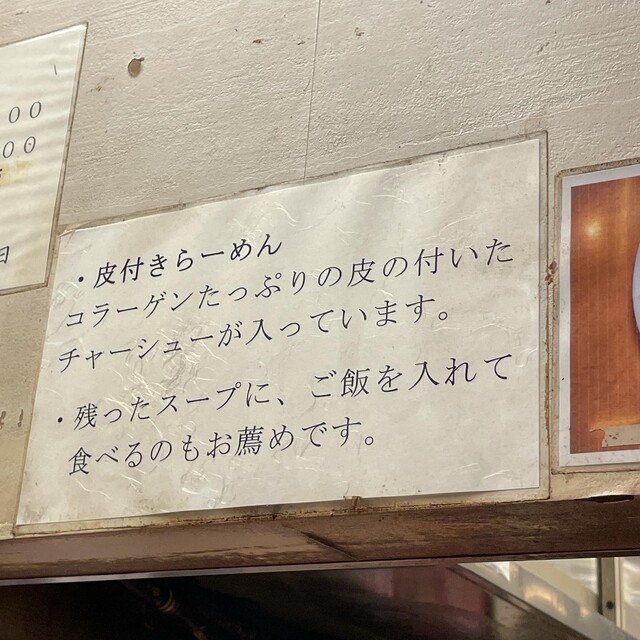 ００
００
日
・皮付きらーめん
コラーゲンたっぷりの皮の付いた
チャーシューが入っています。
・残ったスープに、ご飯を入れて
食べるのもお薦めです。